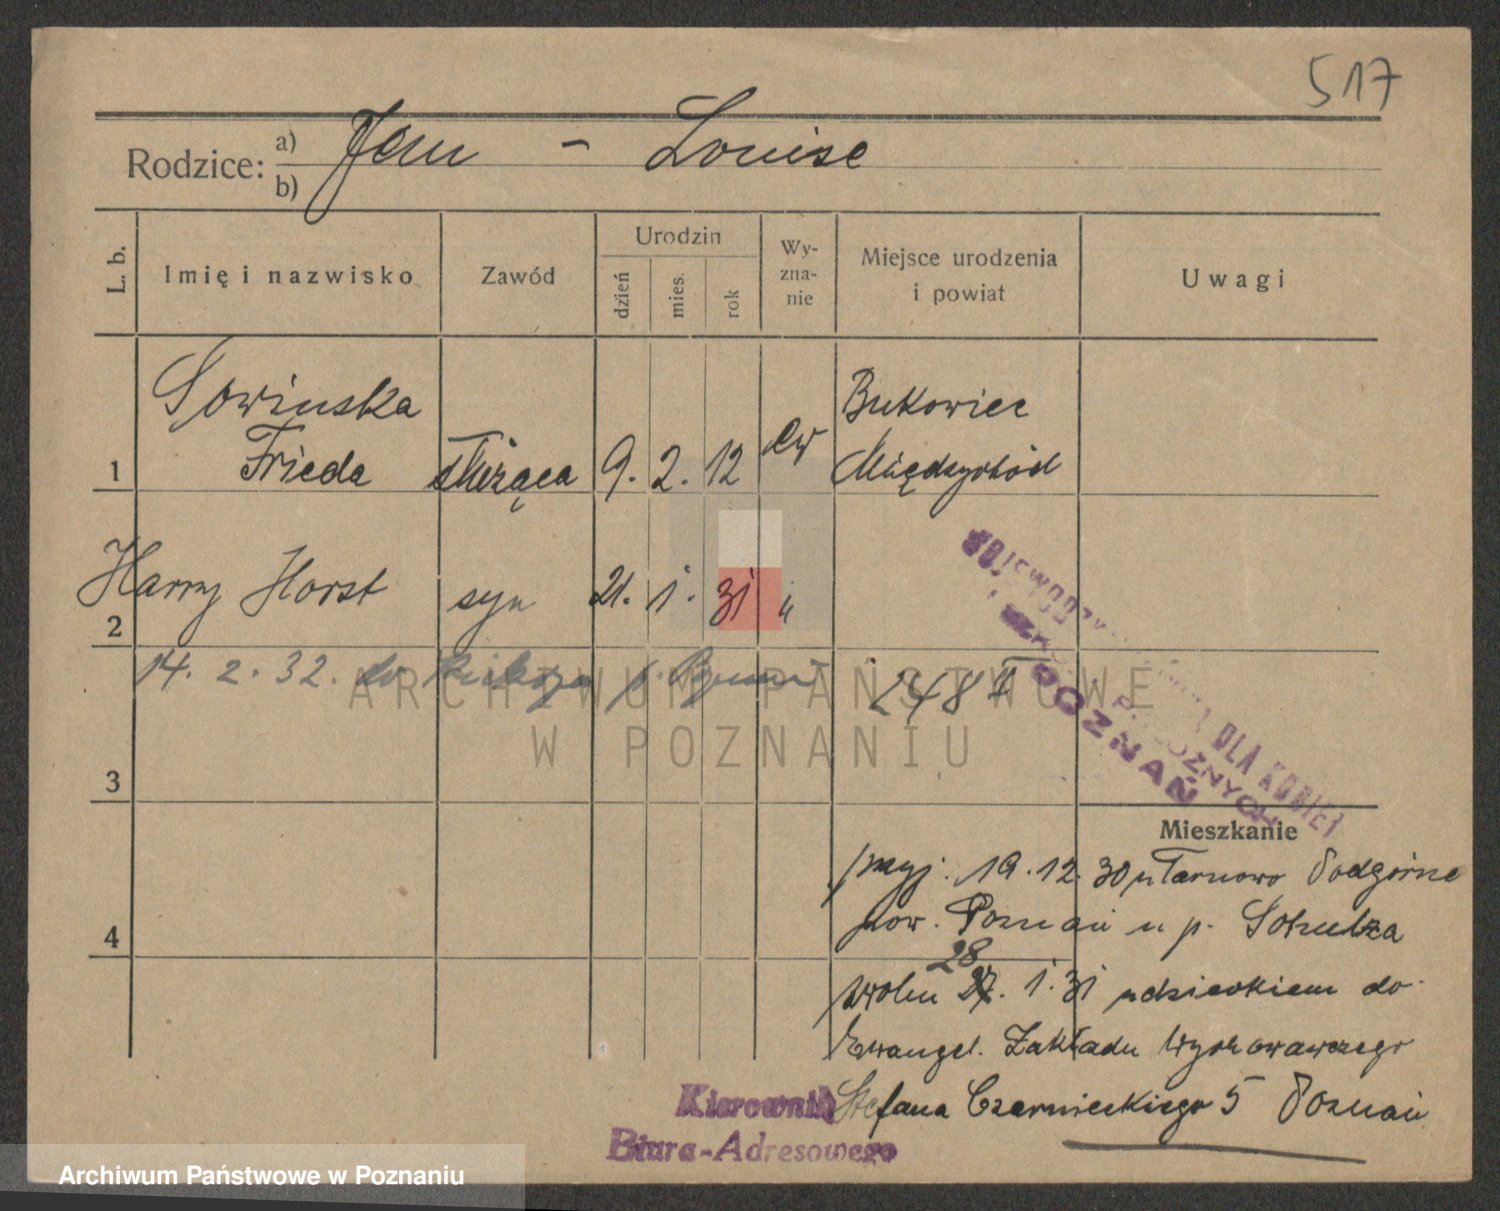 517
Rodzice: a) Jan - Louise
b)
L. b. Imię i nazwisko Zawód Urodzin dzień mies. rok Wyznanie Miejsce urodzenia i powiat Uwagi
Sowinska Bukowiec
1 Frieda służąca 9. 2. 12 ew Międzychód
2 Harry Horst syn 21. 1. 31 "
14. 2. 32. do 248
ARCHIWUM PAŃSTWOWE
W POZNANIU
WOJEWÓDZKA DLA KOBIET
POZNAŃ
3
Mieszkanie
przyj. 19. 12. 30 z Tarnowo Podgórne
4 pow. Poznań u p. Schulza
28
zwoln 27. 1. 31 z dzieckiem do
Ewangel. Zakładu Wychowawczego
Kierownik Stefana Czarnieckiego 5 Poznań
Biura-Adresowego
Archiwum Państwowe w Poznaniu